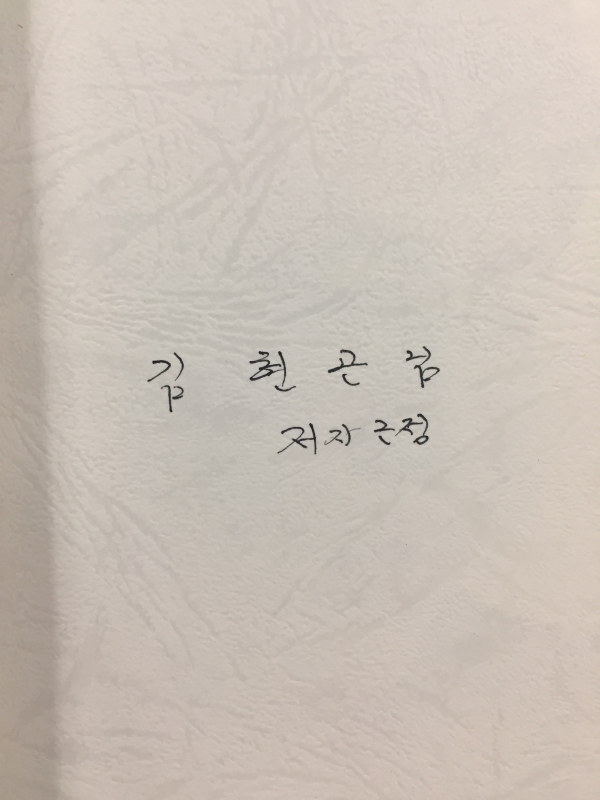 김 현 곤 님
저자 근정